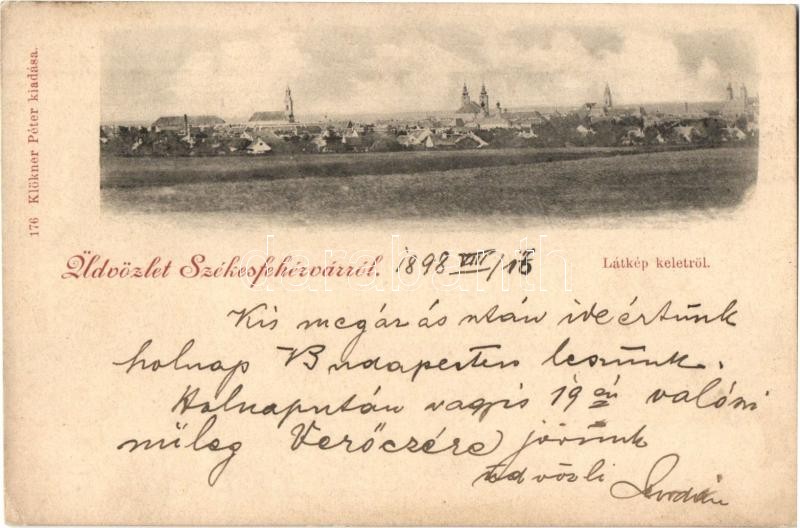 176 Klökner Péter kiadása.
Üdvözlet Székesfehérvárról. 1898 VIII/16
Látkép keletröl.
Kis megázás után ideértünk
holnap Budapesten leszünk.
Holnapután vagyis 19 én valószi
nüleg Verőczére jövünk
üdvözli
darabanth